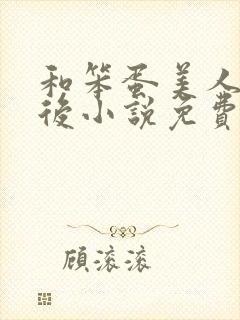 和笨蛋美人
後小說免費
顧滾滾